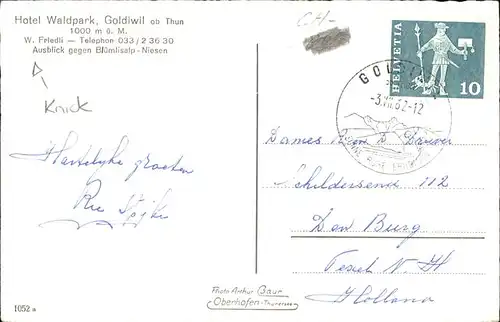 Hotel Waldpark, Goldiwil ob Thun
1000 m ü. M.
W. Friedli — Telephon 033/2 36 30
Ausblick gegen Blümlisalp - Niesen
Knick
CH-
HELVETIA
10
GOLDIWIL
-3.VII.62-12
Hartelijke groeten
Rie
Dames
Schildersend 112
Den Burg
Texel N H
Holland
Photo Arthur Baur
Oberhofen-Thunersee
1052 a